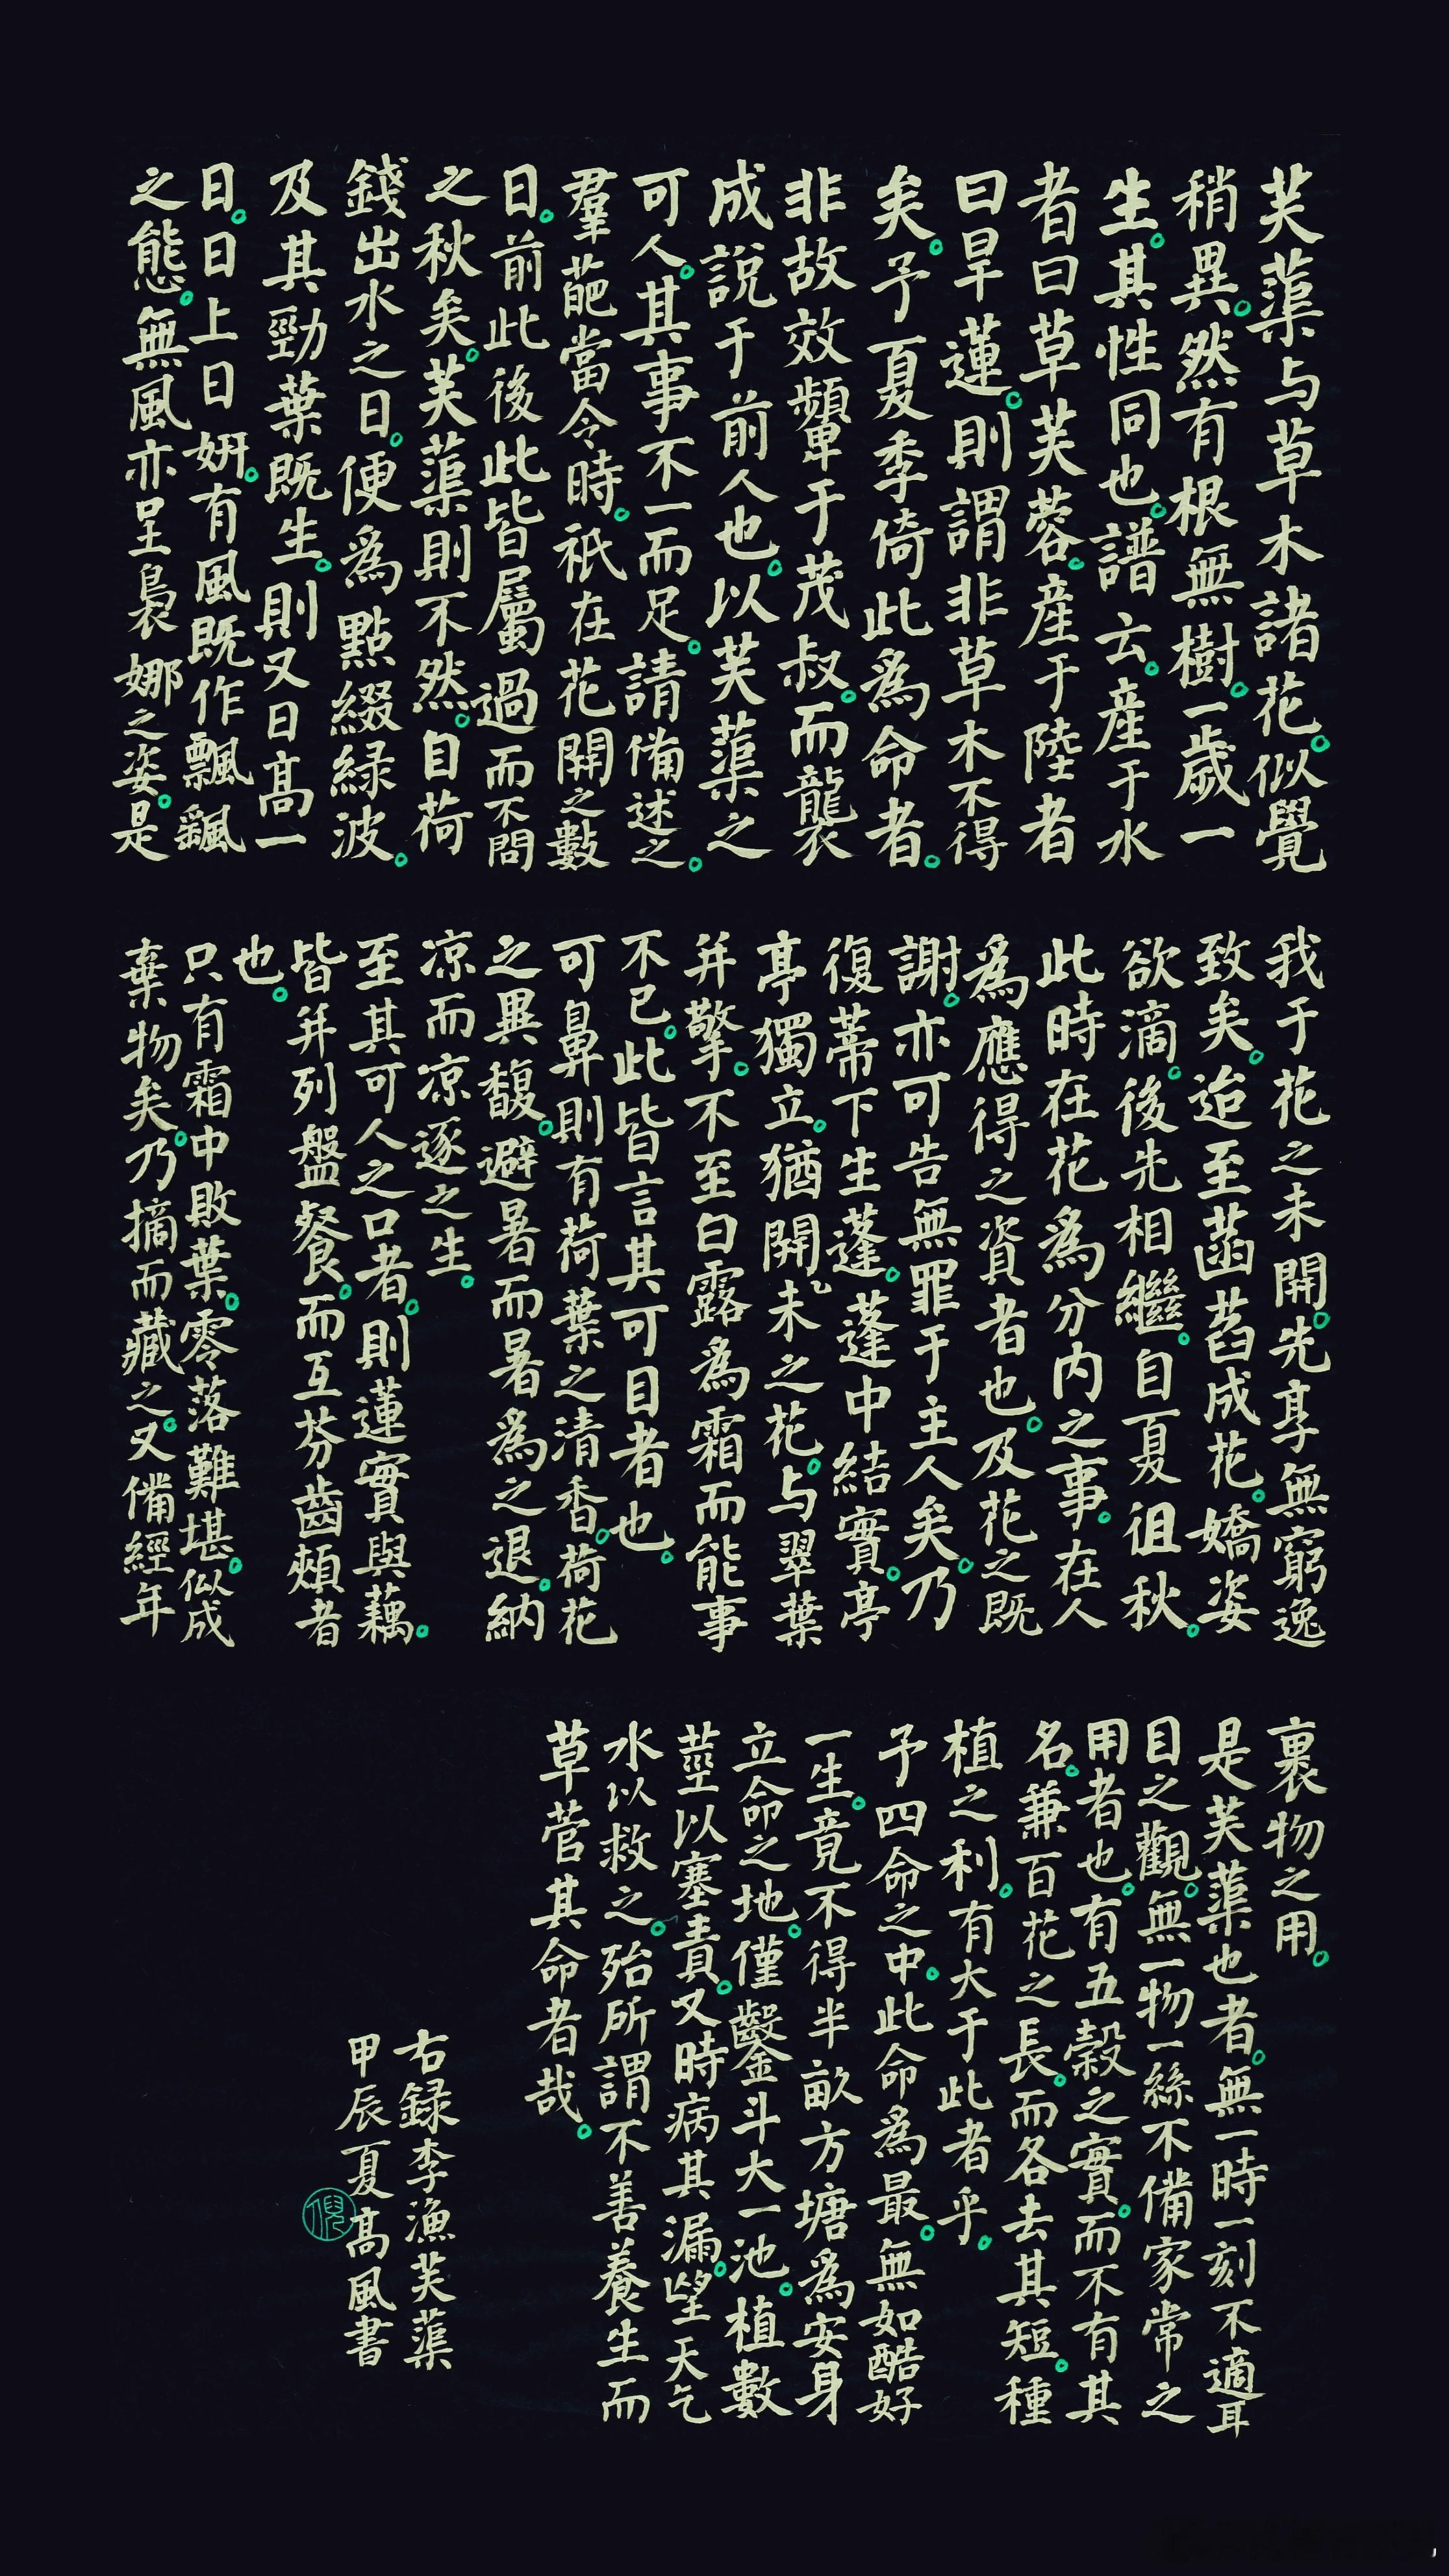 芙蕖与草木諸花。似覺
稍異。然有根無樹。一歲一
生。其性同也。譜云。産于水
者曰草芙蓉。産于陸者
曰旱蓮。則謂非草木不得
矣。予夏季倚此為命者。
非故效顰于茂叔。而襲
成說于前人也。以芙蕖之
可人。其事不一而足。請備述之。
羣葩當令時。祇在花開之數
日。前此後此皆屬過而不問
之秋矣。芙蕖則不然。自荷
錢出水之日。便為點綴緑波。
及其勁葉既生。則又日高一
日。日上日妍。有風既作飄颻
之態。無風亦呈裊娜之姿。是
我于花之未開。先享無窮逸
致矣。迨至菡萏成花。嬌姿
欲滴。後先相繼。自夏徂秋。
此時在花為分内之事。在人
為應得之資者也。及花之既
謝。亦可告無罪于主人矣。乃
復蒂下生蓬。蓬中結實。亭
亭獨立。猶開未之花。与翠葉
并擎。不至白露為霜而能事
不已。此皆言其可目者也。
可鼻則有荷葉之清香。荷花
之異馥。避暑而暑為之退。納
凉而凉逐之生。
至其可人之口者。則蓮實與藕。
皆并列盤餐。而互芬齒頰者
也。
只有霜中敗葉。零落難堪。似成
棄物矣。乃摘而藏之。又備經年
裹物之用。
是芙蕖也者。無一時一刻不適耳
目之觀。無一物一絲不備家常之
用者也。有五穀之實。而不有其
名。兼百花之長。而各去其短。種
植之利。有大于此者乎。
予四命之中。此命為最。無如酷好
一生。竟不得半畝方塘為安身
立命之地。僅鑿斗大一池。植數
莖以塞責。又時病其漏。望天乞
水以救之。殆所謂不善養生而
草菅其命者哉。
右録李漁芙蕖
甲辰夏高風書